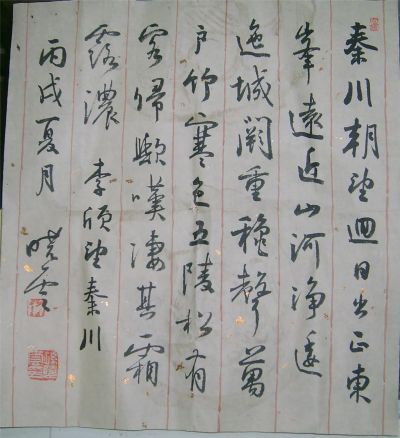 秦川朝望逈日出正東
峯遠近山河淨逶
迤城闕重穐聲萬
戶竹寒色五陵松有
客歸歟嘆淒其霜
露濃 李頎望秦川
丙戌夏月